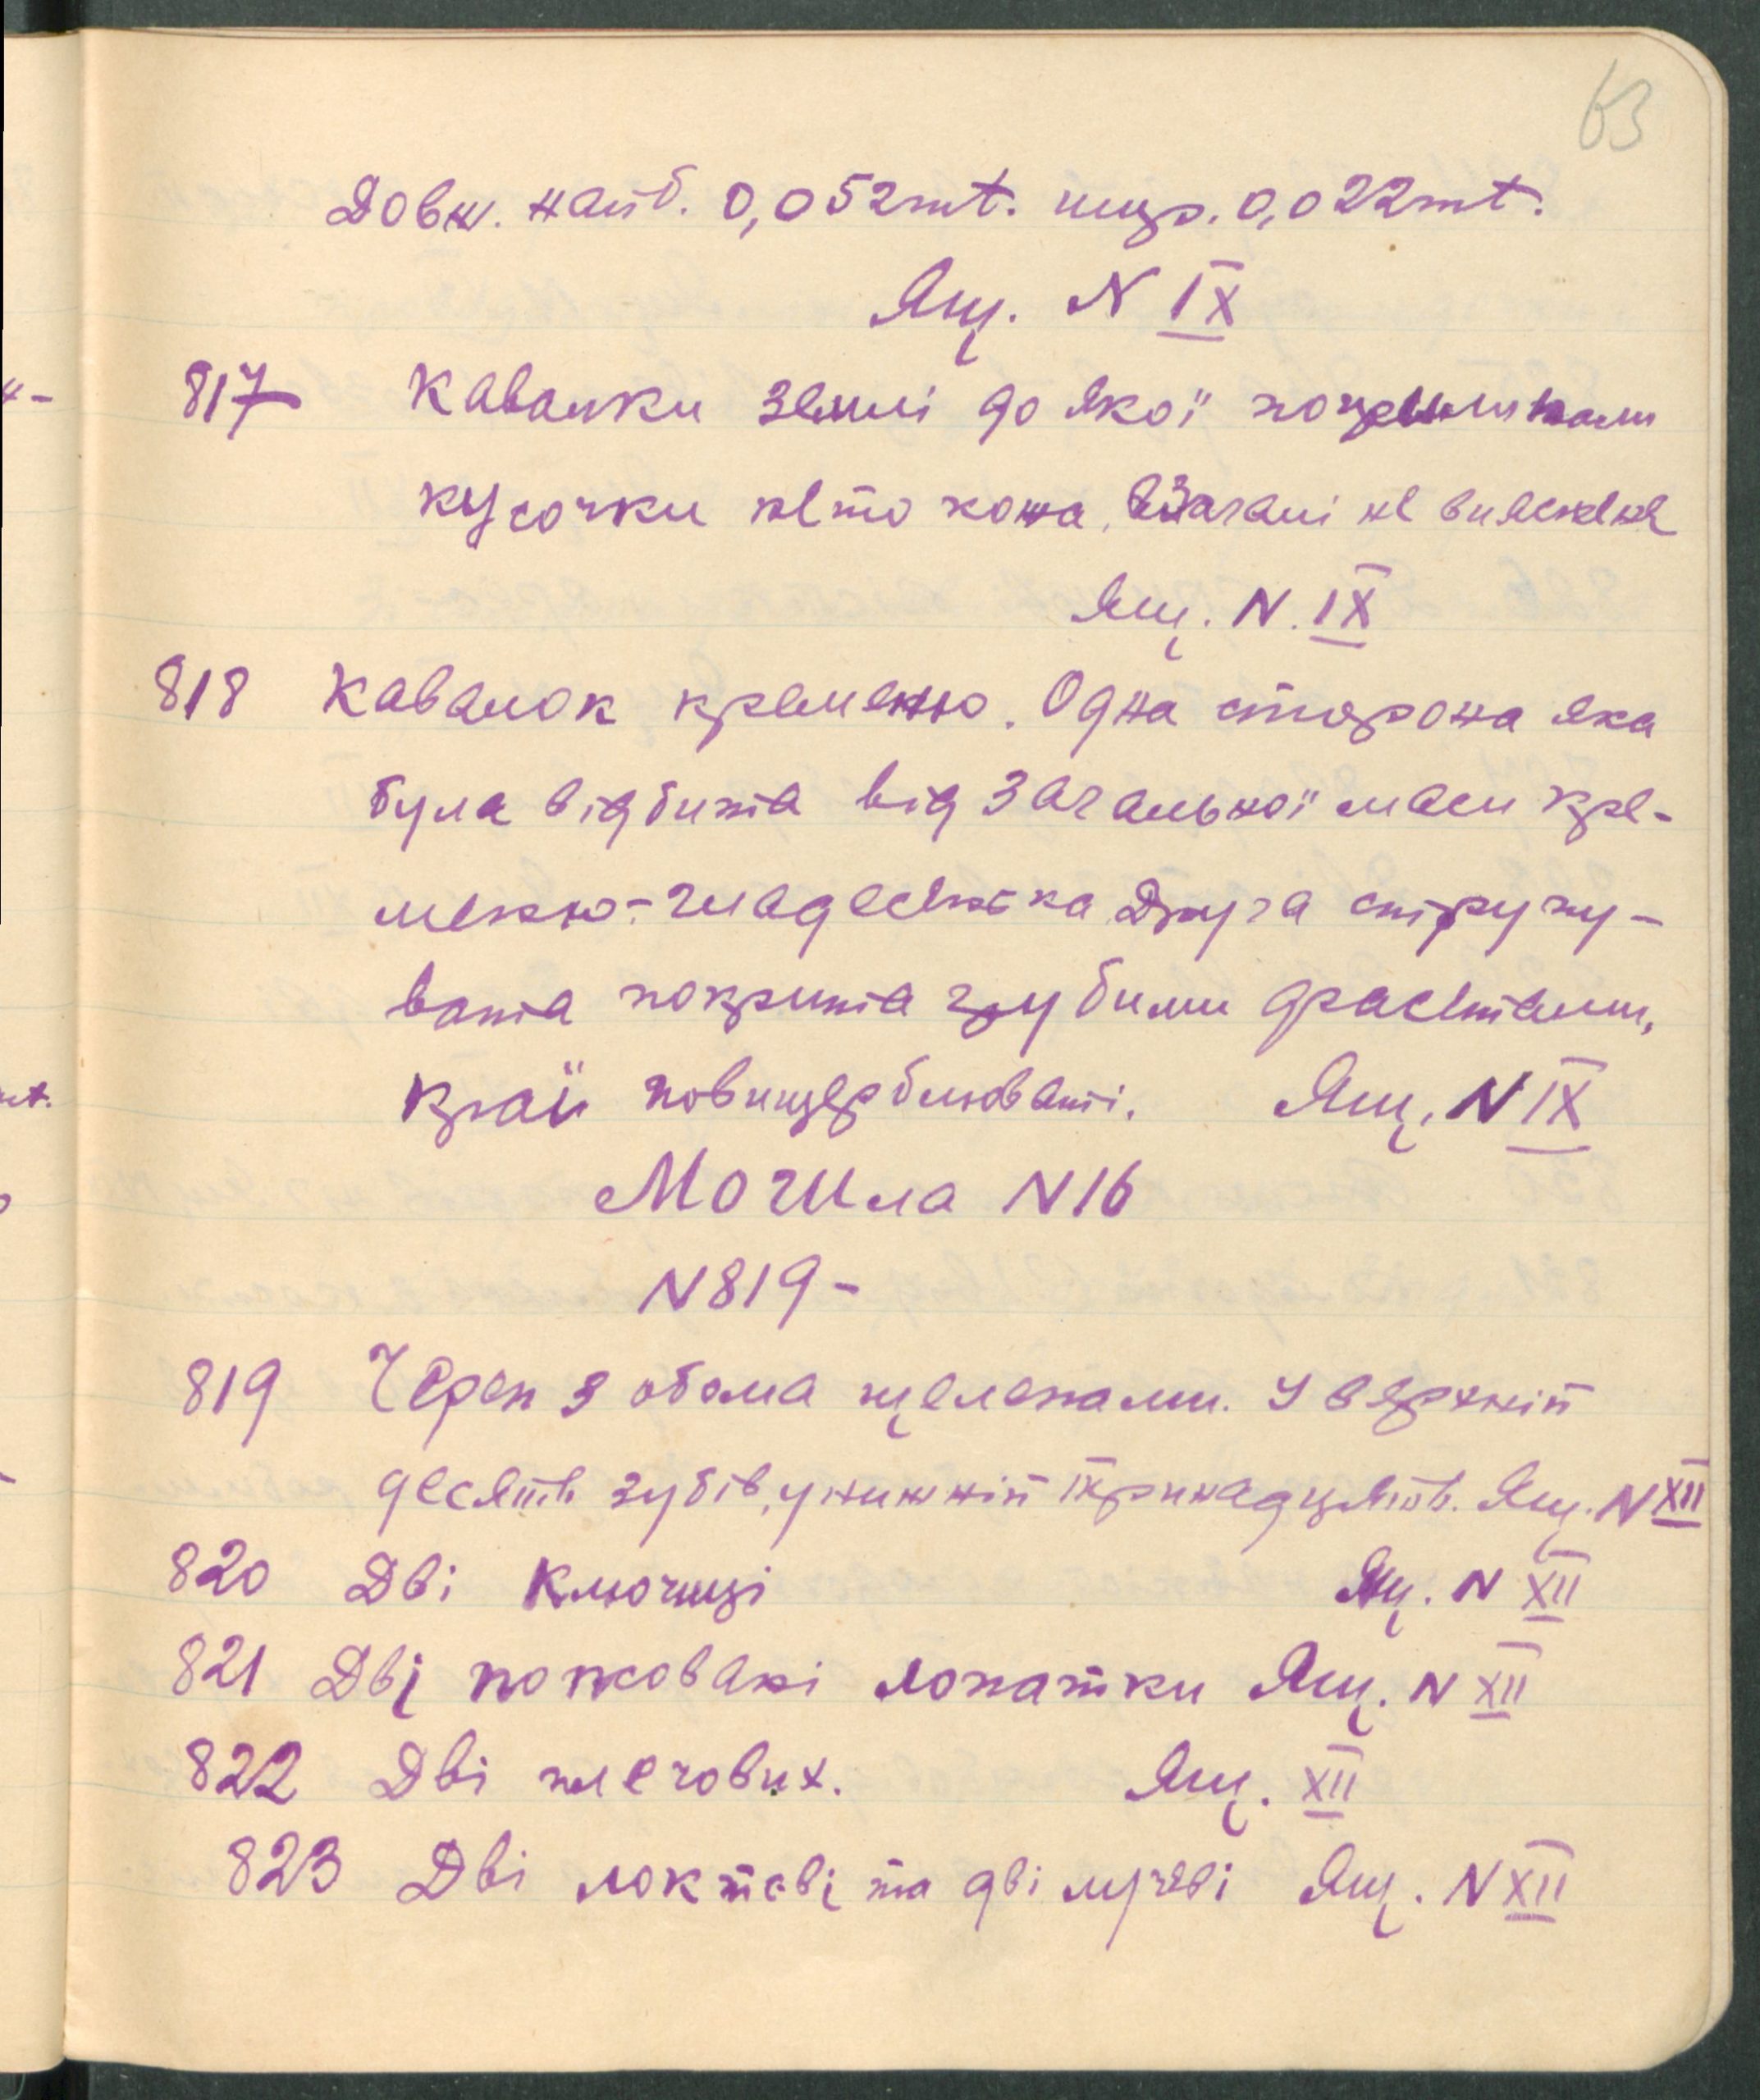 63
Довж. найб. 0,052mt. шир. 0,022mt.
Ящ. N IX
817 Кавалки землі до якої
кусочки не то взагалі не вияснене
Ящ. N. IX
818 Кавалок кременю. Одна сторона яка
була відбита від загальної маси кре-
меню - гладесенька Друга стругу-
вата покрита грубими драснтами,
краї повищерблювані. Ящ. N IX
Могила N 16
N 819 -
819 Череп з обома щелепами. У верхній
десять зубів, у нижній тринадцять. Ящ. N XII
820 Дві ключиці Ящ. N XII
821 Дві попсовані лопатки Ящ. N XII
822 Дві плечових. Ящ. XII
823 Дві локтеві та дві лучеві Ящ. N XII